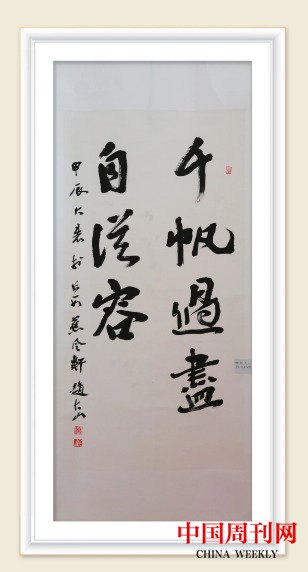 千帆過盡
自從容
甲辰大暑於長安蕉風軒趙大山
中国周刊网
CHINA WEEKLY